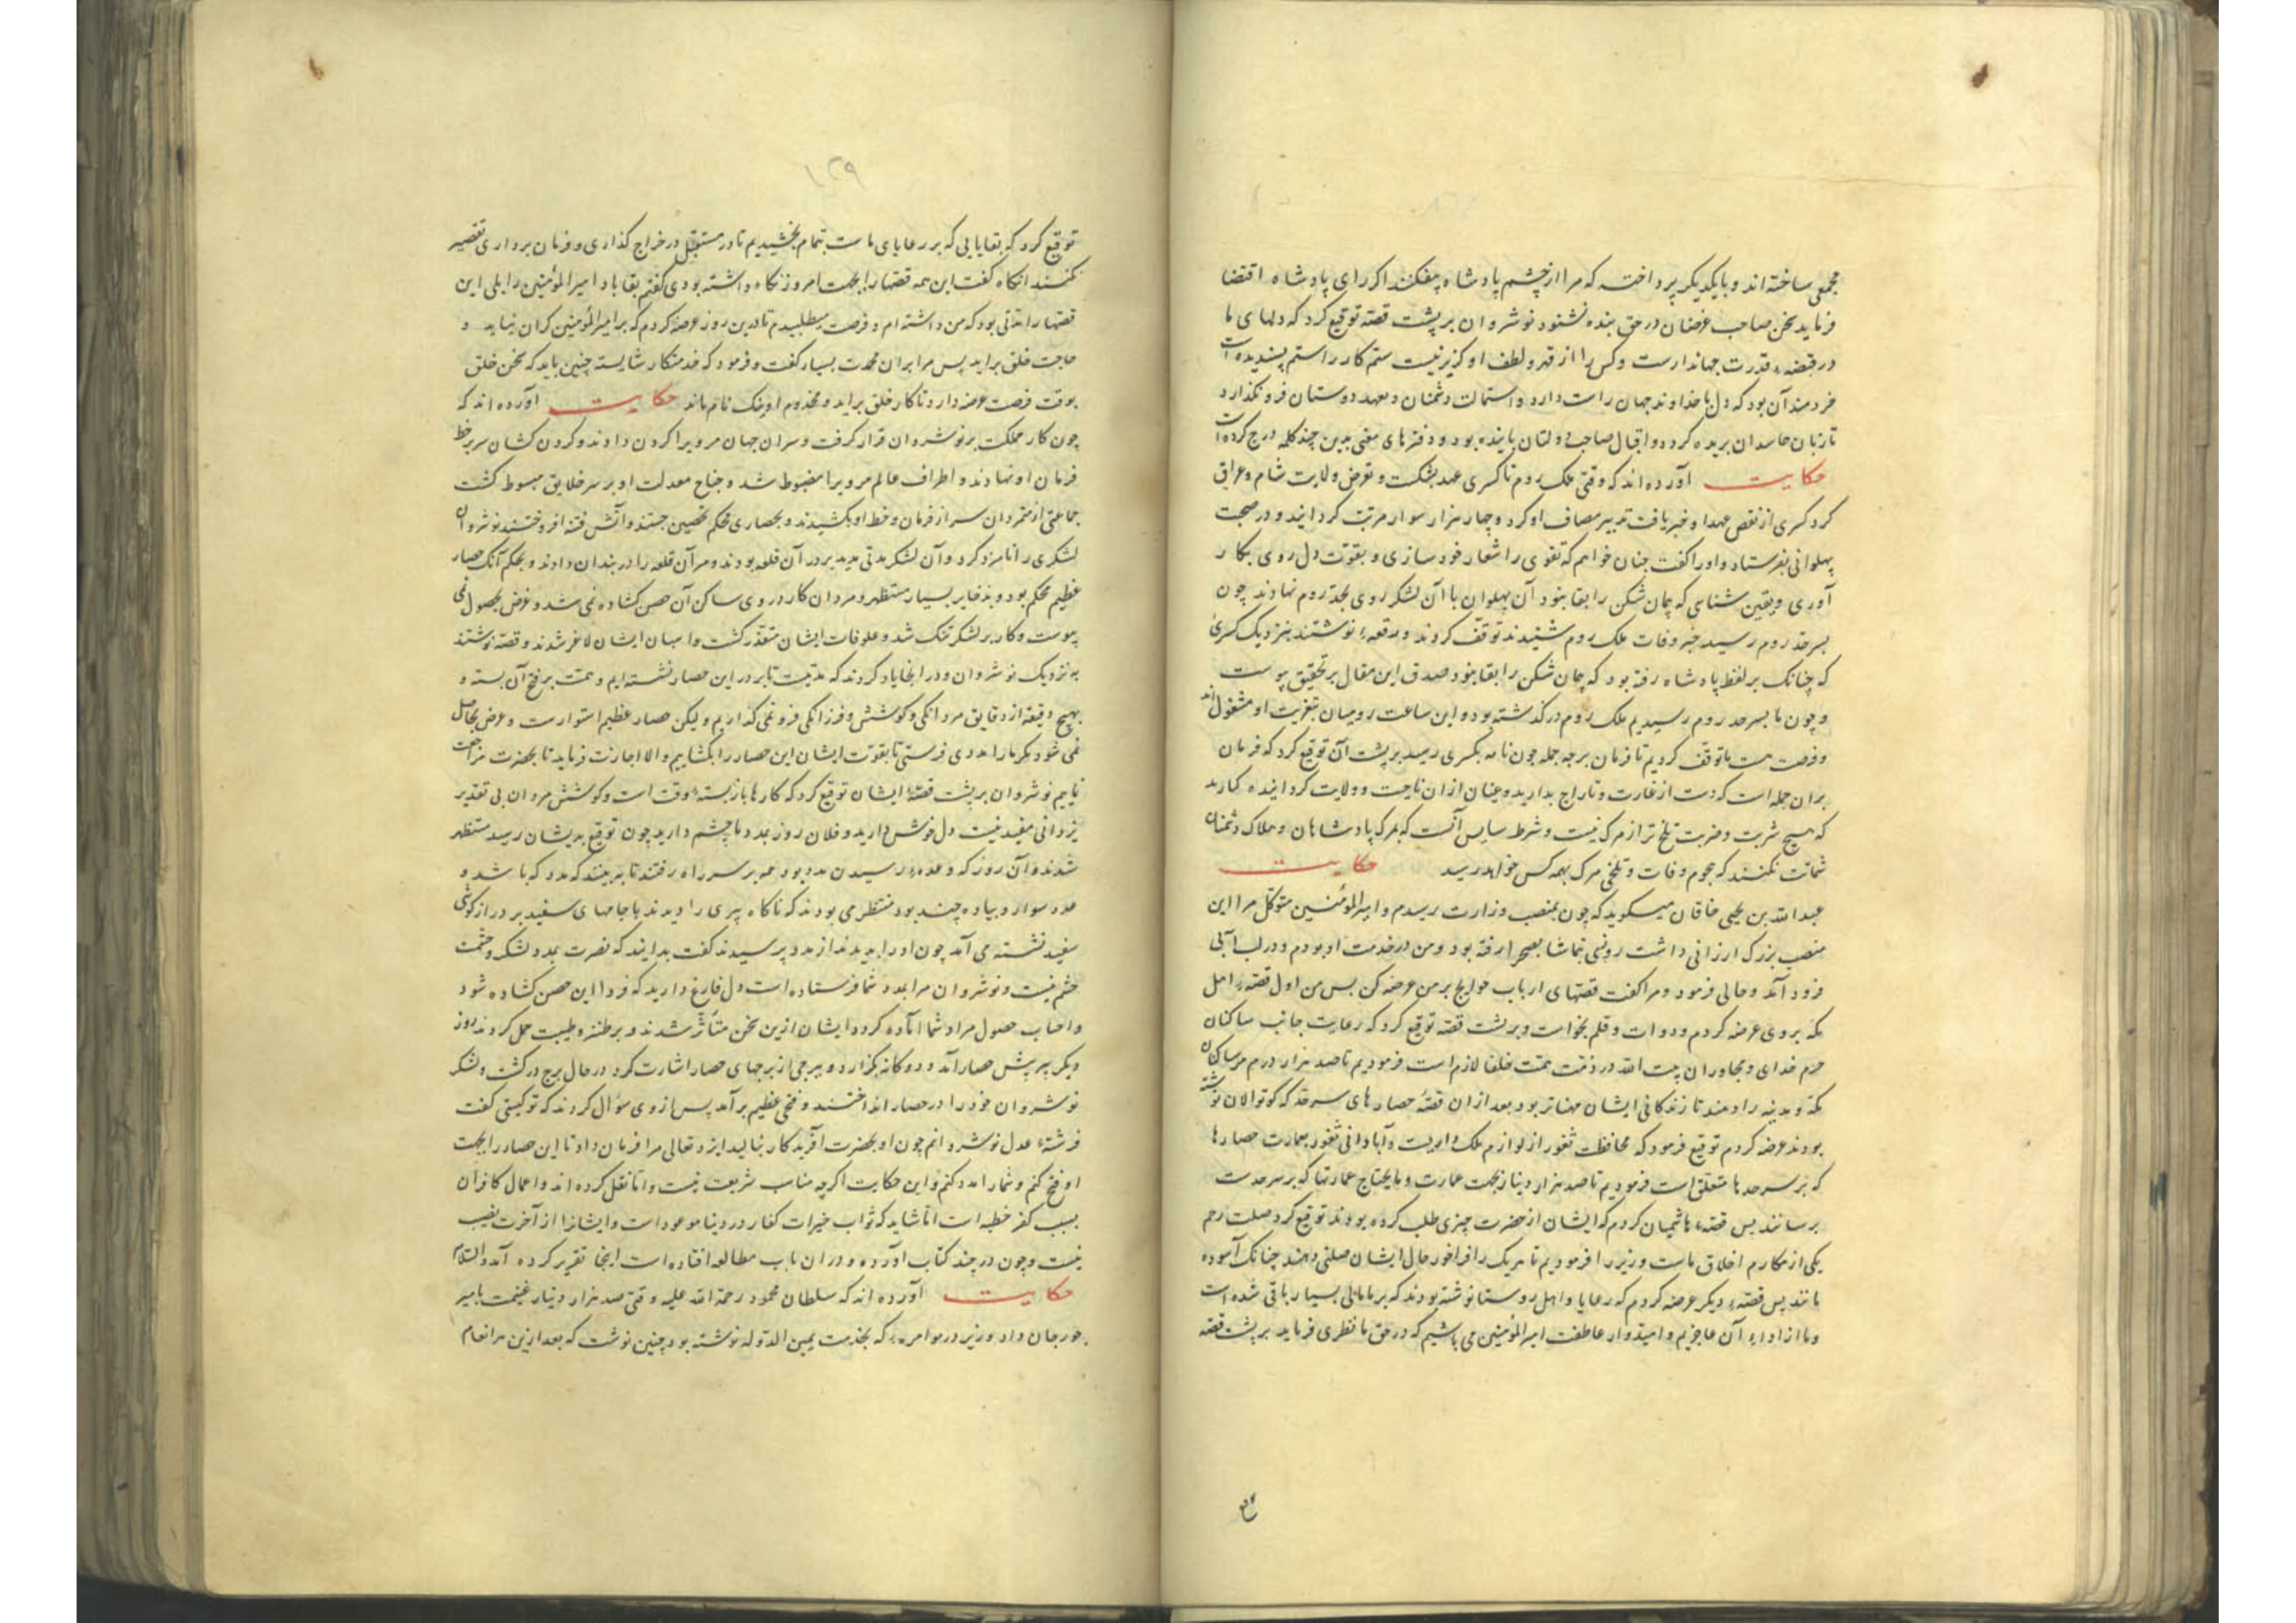 مجمعی ساخته‌اند و با یکدیگر پرداخته که مرا از چشم پادشاه بیفکنند اگر رای پادشاه اقتضا
فرماید سخن صاحب غرضان در حق بنده نشنود نوشروان بر پشت قصه توقیع کرد که دلهای ما
در قبضهٔ قدرت جهاندارست و کس را از قهر و لطف او گزیر نیست ستم کار را ستم پسندیده است
خردمند آن بود که دل با خداوند جهان راست دارد و استمالت دشمنان و تعهد دوستان فرو نگذارد
تا زبان حاسدان بریده گردد و اقبال صاحب دولتان پاینده بود و دفترهای معنی بدین چند کلمه درج کرده است
حکایت آورده‌اند که وقتی ملک روم با کسری عهد بشکست و تعرض ولایت شام و عراق
کرد کسری از نقض عهد او خبر یافت تدبیر مصاف او کرد و چهار هزار سوار مرتب گردانید و در صحبت
پهلوانی بفرستاد و او را گفت چنان خواهم که تقوی را شعار خود سازی و بقوّت دل روی بکار
آوری و یقین شناسی که پیمان شکن را بقا نبود آن پهلوان با آن لشکر روی بحد روم نهادند چون
بسرحد روم رسید خبر وفات ملک روم شنیدند توقف کردند و رقعهٔ نوشتند بنزدیک کسری
که چنانک بر لفظ پادشاه رفته بود که پیمان شکن را بقا نبود صدق این مقال بر تحقیق پیوست
و چون ما بسرحد روم رسیدیم ملک روم درگذشته بود و این ساعت رومیان بتعزیت او مشغول‌اند
و فرصت هست ما توقف کردیم تا فرمان بر چه جمله چون نامه بکسری رسید بر پشت آن توقیع کرد که فرمان
بران جمله است که دست از غارت و تاراج بدارید و عنان از ان ناحیت و ولایت گردانیده بگذارید
که هیچ شربت و ضربت تلخ‌تر از مرگ نیست و شرط سایس آنست که بمرگ پادشاهان و هلاک دشمنان
شماتت نکنند که هجوم وفات و تلخی مرگ بهمه کس خواهد رسید حکایت
عبد الله بن یحیی خاقان میگوید که چون بمنصب وزارت رسیدم و امیر المؤمنین متوکل مرا این
منصب بزرگ ارزانی داشت روزی بتماشا بصحرا رفته بود و من در خدمت او بودم و در لب آبی
فرود آمد و حالی فرمود و مرا گفت قصتهای ارباب حوایج بر من عرضه کن پس من اول قصهٔ اهل
مکه بر وی عرضه کردم و دوات و قلم بخواست و بر پشت قصه توقیع کرد که رعایت جانب ساکنان
حرم خدای و مجاوران بیت الله در ذمّت همّت خلفا لازم است فرمودیم تا صد هزار درم مر ساکنان
مکه و مدینه را دهند تا زندگانی ایشان مهناتر بود بعد ازان قصهٔ حصارهای سرحد که کوتوالان نوشته
بودند عرضه کردم توقیع فرمود که محافظت ثغور از لوازم ملک داریست و آبادانی ثغور بعمارت حصارها
که بر سرحدها متعلق است فرمودیم تا صد هزار دینار بجهت عمارت و مایحتاج عمارتها که بر سرحدست
برسانند پس قصهٔ هاشمیان کردم که ایشان از حضرت چیزی طلب کرده بودند توقیع کرد صلت رحم
یکی از مکارم اخلاق ماست وزیر را فرمودیم تا هر یک را فراخور حال ایشان صلتی دهند چنانک آسوده
مانند پس قصهٔ دیگر عرضه کردم که رعایا و اهل روستا نوشته بودند که بر ما مالی بسیار باقی شده است
و ما از اداء آن عاجزیم و امیدوار عاطفت امیر المؤمنین می‌باشیم که در حق ما نظری فرماید بر پشت قصه
۱۲۹
توقیع کرد که بقایایی که بر رعایای ماست بتمام بخشیدیم تا در مستقبل در خراج گذاری و فرمان برداری تقصیر
نکنند انگاه گفت این همه قصها را بجهت امروز نگاه داشته بودی گفتم بقا باد امیر المؤمنین را بلی این
قصها را مدتی بود که من داشته‌ام و فرصت میطلبیدم تا درین روز عرضه کردم که بر امیر المؤمنین گران نیاید و
حاجت خلق براید پس مرا بران محمدت بسیار گفت و فرمود که خدمتکار شایسته چنین باید که سخن خلق
بوقت فرصت عرضه دارد تا کار خلق براید و مخدوم او نیک نام ماند حکایت آورده‌اند که
چون کار مملکت بر نوشروان قرار گرفت و سران جهان مر ویرا گردن دادند و گردن کشان سر بر خط
فرمان او نهادند و اطراف عالم مر ویرا مضبوط شد و جناح معدلت او بر سر خلایق مبسوط گشت
جماعتی از متمردان سر از فرمان و خط او بکشیدند و بحصاری محکم تحصین جستند و آتش فتنه افروختند نوشروان
لشکری را نامزد کرد و آن لشکر مدتی مدید بر در آن قلعه بودند و مر آن قلعه را در بندان دادند و بحکم آنک حصار
عظیم محکم بود و بذخایر بسیار مستظهر و مردان کار در وی ساکن آن حصن گشاده نمی‌شد و غرض بحصول نمی
پیوست و کار بر لشکر تنگ شد و علوفات ایشان متعذر گشت و اسبان ایشان لاغر شدند و قصه نوشتند
به نزدیک نوشروان و در انجا یاد کردند که مدتیست تا بر در این حصار نشسته‌ایم و همت بر فتح آن بسته و
بهیچ دقیقه از دقایق مردانگی و کوشش و فرزانگی فرو نمی‌گذاریم ولیکن حصار عظیم استوارست و غرض بحاصل
نمی‌شود دیگر بار امددی فرستی تا بقوّت ایشان این حصار را بگشاییم والا اجازت فرماید تا بحضرت مراجعت
نماییم نوشروان بر پشت قصهٔ ایشان توقیع کرد که کارها باز بستهٔ وقت است و کوشش مردان بی تقدیر
یزدانی مفید نیست دل خوش دارید و فلان روز مدد ما چشم دارید چون توقیع بدیشان رسید مستظهر
شدند و آن روز که وعدهٔ رسیدن مدد بود همه بر سر راه رفتند تا به بینند که مدد که باشد و
عدد سوار و پیاده چند بود منتظر می بودند که ناگاه پیری را دیدند با جامهای سفید بر درازگوشی
سفید نشسته می آمد چون او را بدیدند از مدد پرسیدند گفت بدانید که نصرت بمدد لشکر و حشمت
حشم نیست و نوشروان مرا بمدد شما فرستاده است دل فارغ دارید که فردا این حصن گشاده شود
و اسباب حصول مراد شما آماده گردد ایشان ازین سخن متأثر شدند و بر طنز و طیبت حمل کردند روز
دیگر پیر پیش حصار آمد و دوگانه بگزارد و ببرجی از برجهای حصار اشارت کرد در حال برج در گشت و لشکر
نوشروان خود را در حصار انداختند و فتحی عظیم برآمد پس از وی سؤال کردند که تو کیستی گفت
فرشتهٔ عدل نوشروانم چون او بحضرت آفریدگار بنالید ایزد تعالی مرا فرمان داد تا این حصار را بجهت
او فتح کنم و شما را مدد کنم و این حکایت اگرچه مناسب شریعت نیست و اما نقل کرده‌اند و اعمال کافران
بسبب کفر حبطه است اما شاید که ثواب خیرات کفار در دنیا موعود است و ایشانرا از آخرت نصیب
نیست و چون در چند کتاب آورده و در ان باب مطالعه افتاده است اینجا تقریر کرده آمد والسلام
حکایت آورده‌اند که سلطان محمود رحمة الله علیه وقتی صد هزار دینار غنیمت بامیر
جورجان داد وزیر در موامرهٔ که بخدمت یمین الدوله نوشته بود چنین نوشت که بعد ازین هر انعام